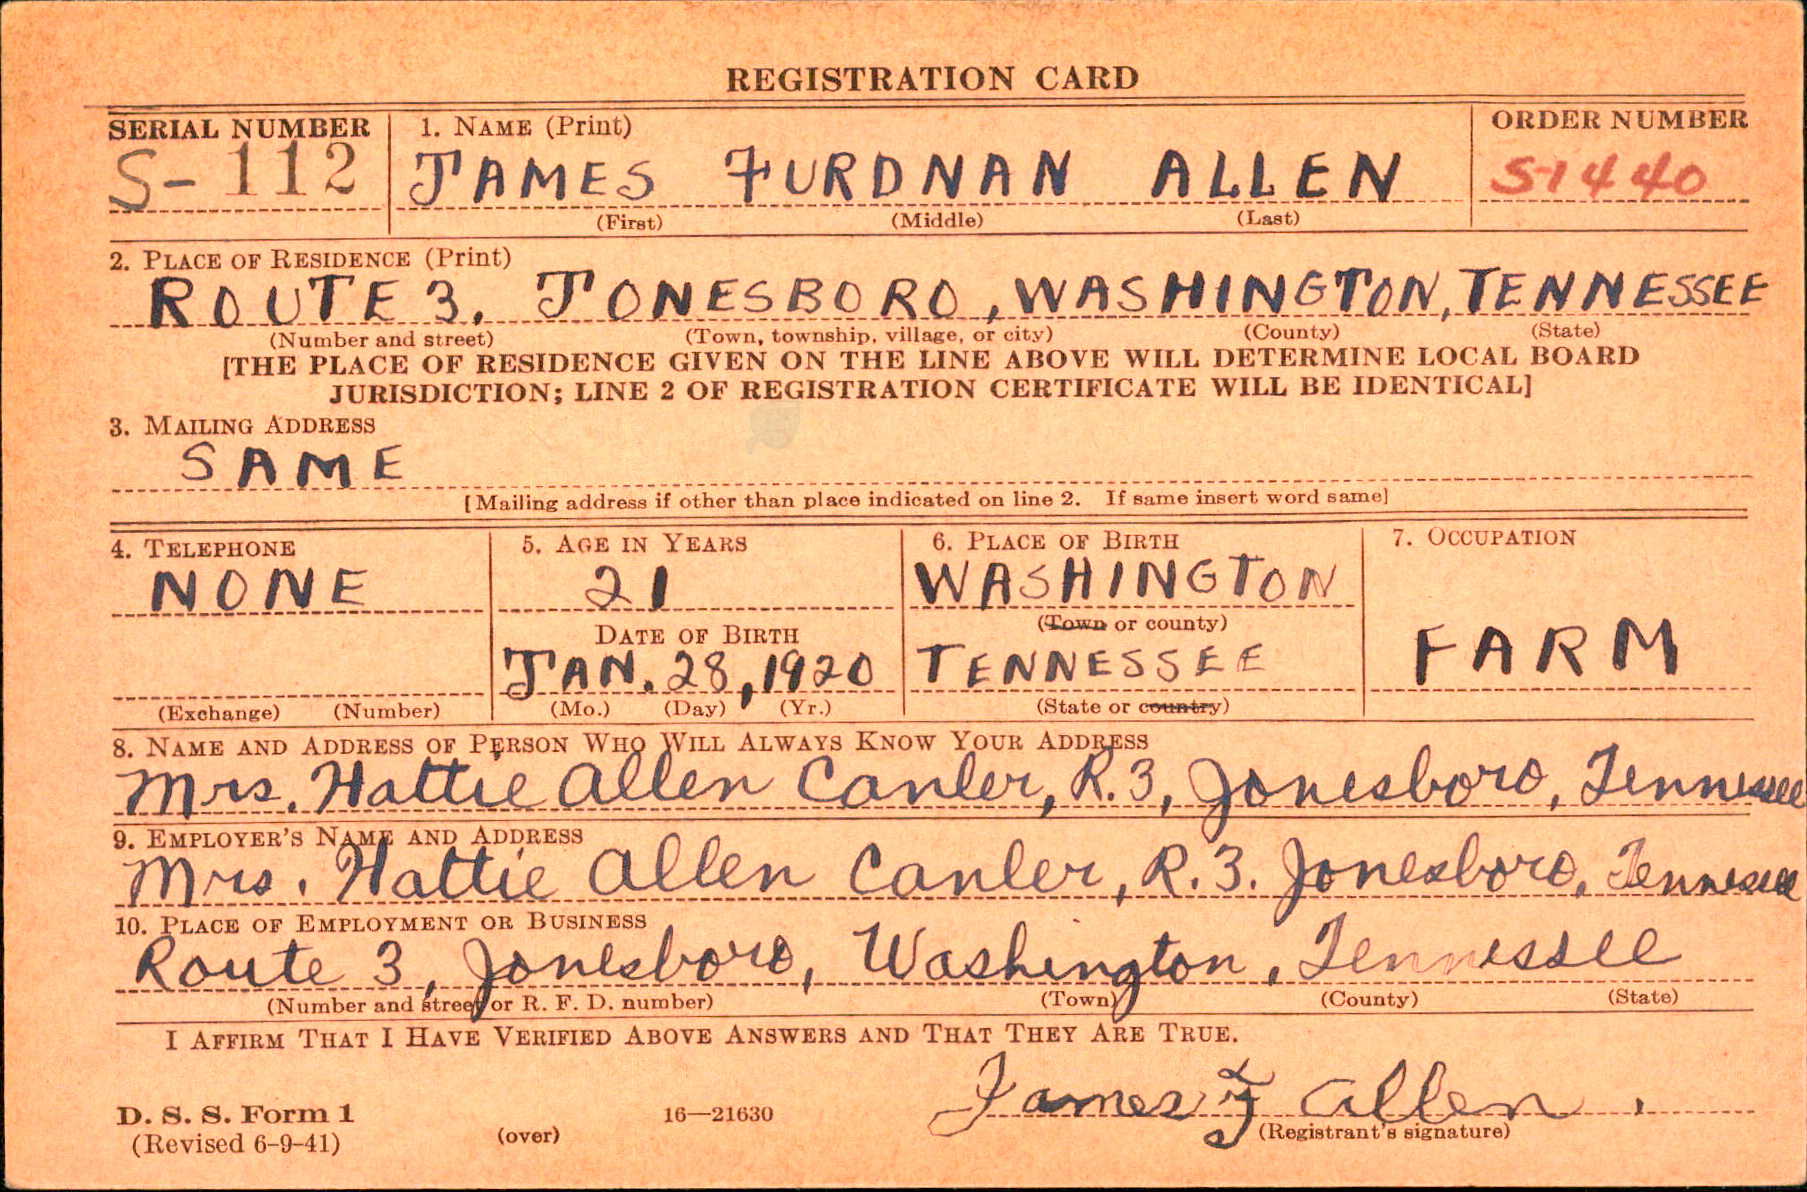 REGISTRATION CARD
SERIAL NUMBER 1. NAME (Print) ORDER NUMBER
S-112 JAMES FURDNAN ALLEN S-1440
(First) (Middle) (Last)
2. PLACE OF RESIDENCE (Print)
ROUTE 3, JONESBORO, WASHINGTON, TENNESSEE
(Number and street) (Town, township, village, or city) (County) (State)
[THE PLACE OF RESIDENCE GIVEN ON THE LINE ABOVE WILL DETERMINE LOCAL BOARD
JURISDICTION; LINE 2 OF REGISTRATION CERTIFICATE WILL BE IDENTICAL]
3. MAILING ADDRESS
SAME
[Mailing address if other than place indicated on line 2. If same insert word same]
4. TELEPHONE 5. AGE IN YEARS 6. PLACE OF BIRTH 7. OCCUPATION
NONE 21 WASHINGTON
DATE OF BIRTH (Town or county)
JAN. 28, 1920 TENNESSEE FARM
(Exchange) (Number) (Mo.) (Day) (Yr.) (State or country)
8. NAME AND ADDRESS OF PERSON WHO WILL ALWAYS KNOW YOUR ADDRESS
Mrs. Hattie Allen Canler, R.3, Jonesboro, Tennessee
9. EMPLOYER'S NAME AND ADDRESS
Mrs. Hattie Allen Canler, R.3. Jonesboro, Tennessee
10. PLACE OF EMPLOYMENT OR BUSINESS
Route 3, Jonesboro, Washington, Tennessee
(Number and street or R. F. D. number) (Town) (County) (State)
I AFFIRM THAT I HAVE VERIFIED ABOVE ANSWERS AND THAT THEY ARE TRUE.
James F Allen.
D. S. S. Form 1 16—21630
(Revised 6-9-41) (over) (Registrant's signature)